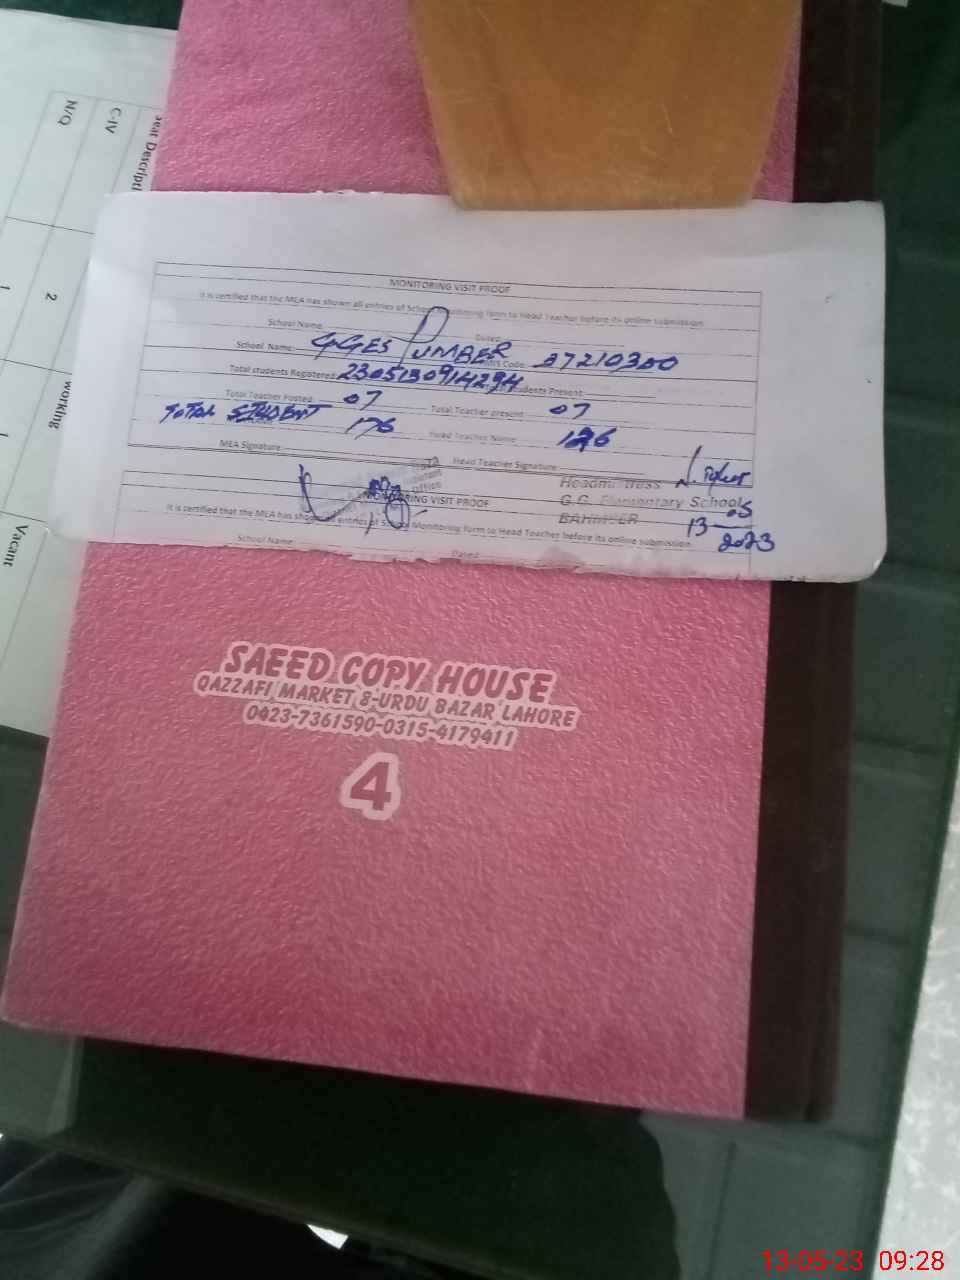 Seat Descripti
C-IV
N/Q
2
1
working
1
Vacant
MONITORING VISIT PROOF
It is certified that the MEA has shown all entries of School Monitoring form to Head Teacher before its online submission
School Name Dated
School Name: GGES PUMBER EMIS Code: 37210300
Total students Registered: 2305130914294 Students Present:
Total Teacher Posted 07 Total Teacher present 07
TOTAL STUDENT 176 Head Teacher Name 126
MEA Signature Head Teacher Signature
Headmistress
G.G. Elementary School
13-05
2023
office
MONITORING VISIT PROOF
It is certified that the MEA has shown all entries of School Monitoring form to Head Teacher before its online submission
School Name: Dated
SAEED COPY HOUSE
QAZZAFI MARKET 8-URDU BAZAR LAHORE
0423-7361590-0315-4179411
4
13-05-23 09:28